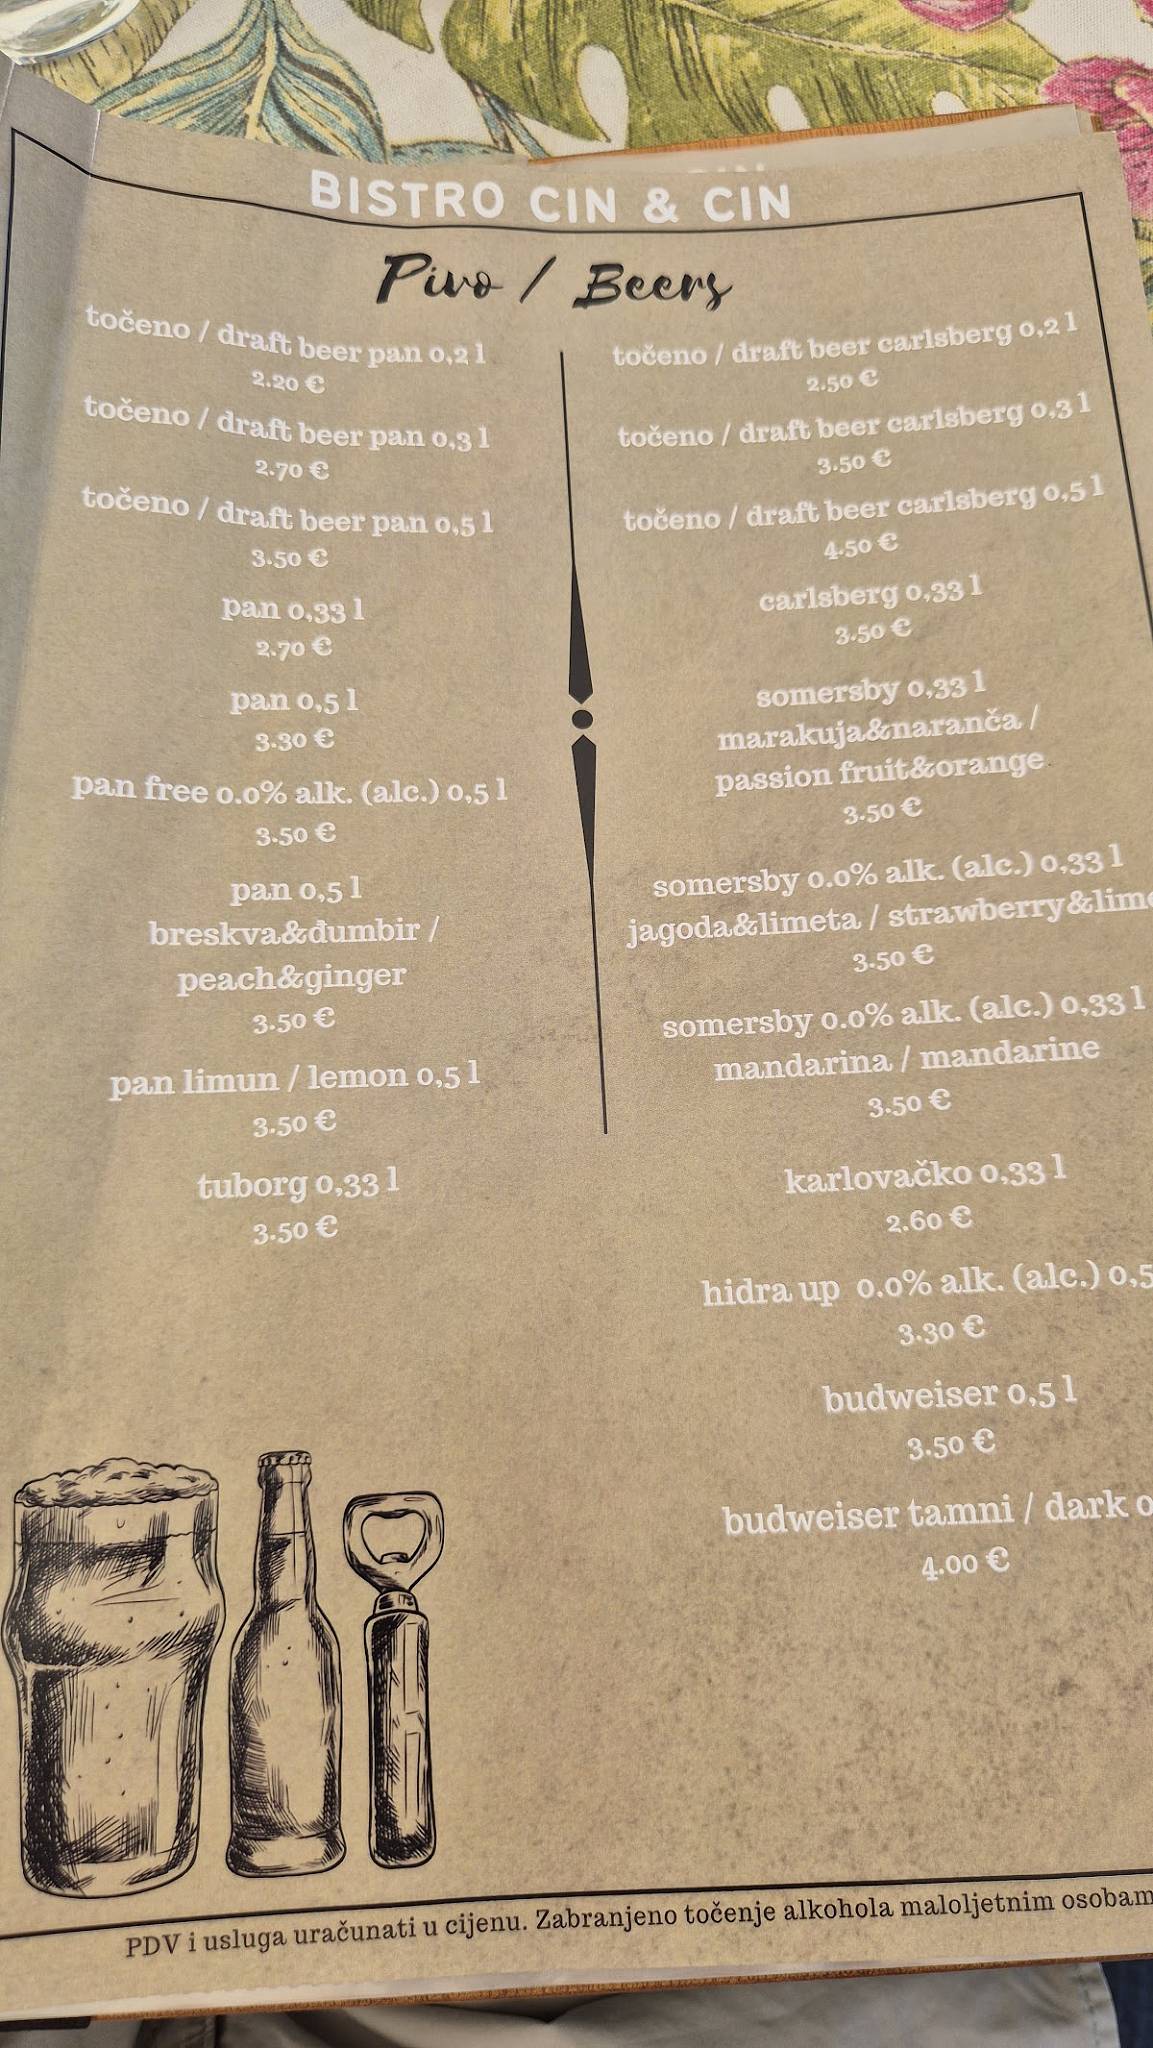 BISTRO CIN & CIN
Pivo / Beers
točeno / draft beer pan 0,2 l
2.20 €
točeno / draft beer pan 0,3 l
2.70 €
točeno / draft beer pan 0,5 l
3.50 €
pan 0,33 l
2.70 €
pan 0,5 l
3.30 €
pan free 0.0% alk. (alc.) 0,5 l
3.50 €
pan 0,5 l
breskva&đumbir /
peach&ginger
3.50 €
pan limun / lemon 0,5 l
3.50 €
tuborg 0,33 l
3.50 €
točeno / draft beer carlsberg 0,2 l
2.50 €
točeno / draft beer carlsberg 0,3 l
3.50 €
točeno / draft beer carlsberg 0,5 l
4.50 €
carlsberg 0,33 l
3.50 €
somersby 0,33 l
marakuja&naranča /
passion fruit&orange
3.50 €
somersby 0.0% alk. (alc.) 0,33 l
jagoda&limeta / strawberry&lime
3.50 €
somersby 0.0% alk. (alc.) 0,33 l
mandarina / mandarine
3.50 €
karlovačko 0,33 l
2.60 €
hidra up 0.0% alk. (alc.) 0,5
3.30 €
budweiser 0,5 l
3.50 €
budweiser tamni / dark 0
4.00 €
PDV i usluga uračunati u cijenu. Zabranjeno točenje alkohola maloljetnim osobam